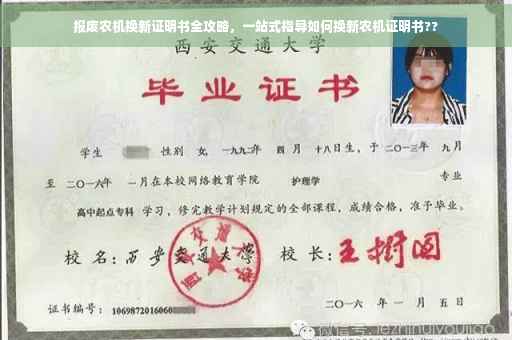 报废农机换新证明书全攻略，一站式指导如何换新农机证明书??
西安交通大学
毕业证书
学生 性别 女，一九九二年 四月 十八日生，于二〇一三年 九月
至 二〇一六年 一月在本校网络教育学院 护理学 专业
高中起点专科 学习，修完教学计划规定的全部课程，成绩合格，准予毕业。
校名：西安交通大学 校长：王树国
西安交通大学
证书编号：1069872016060
二〇一六 年 一 月 五 日
微信号: jezhinuiyoujiao